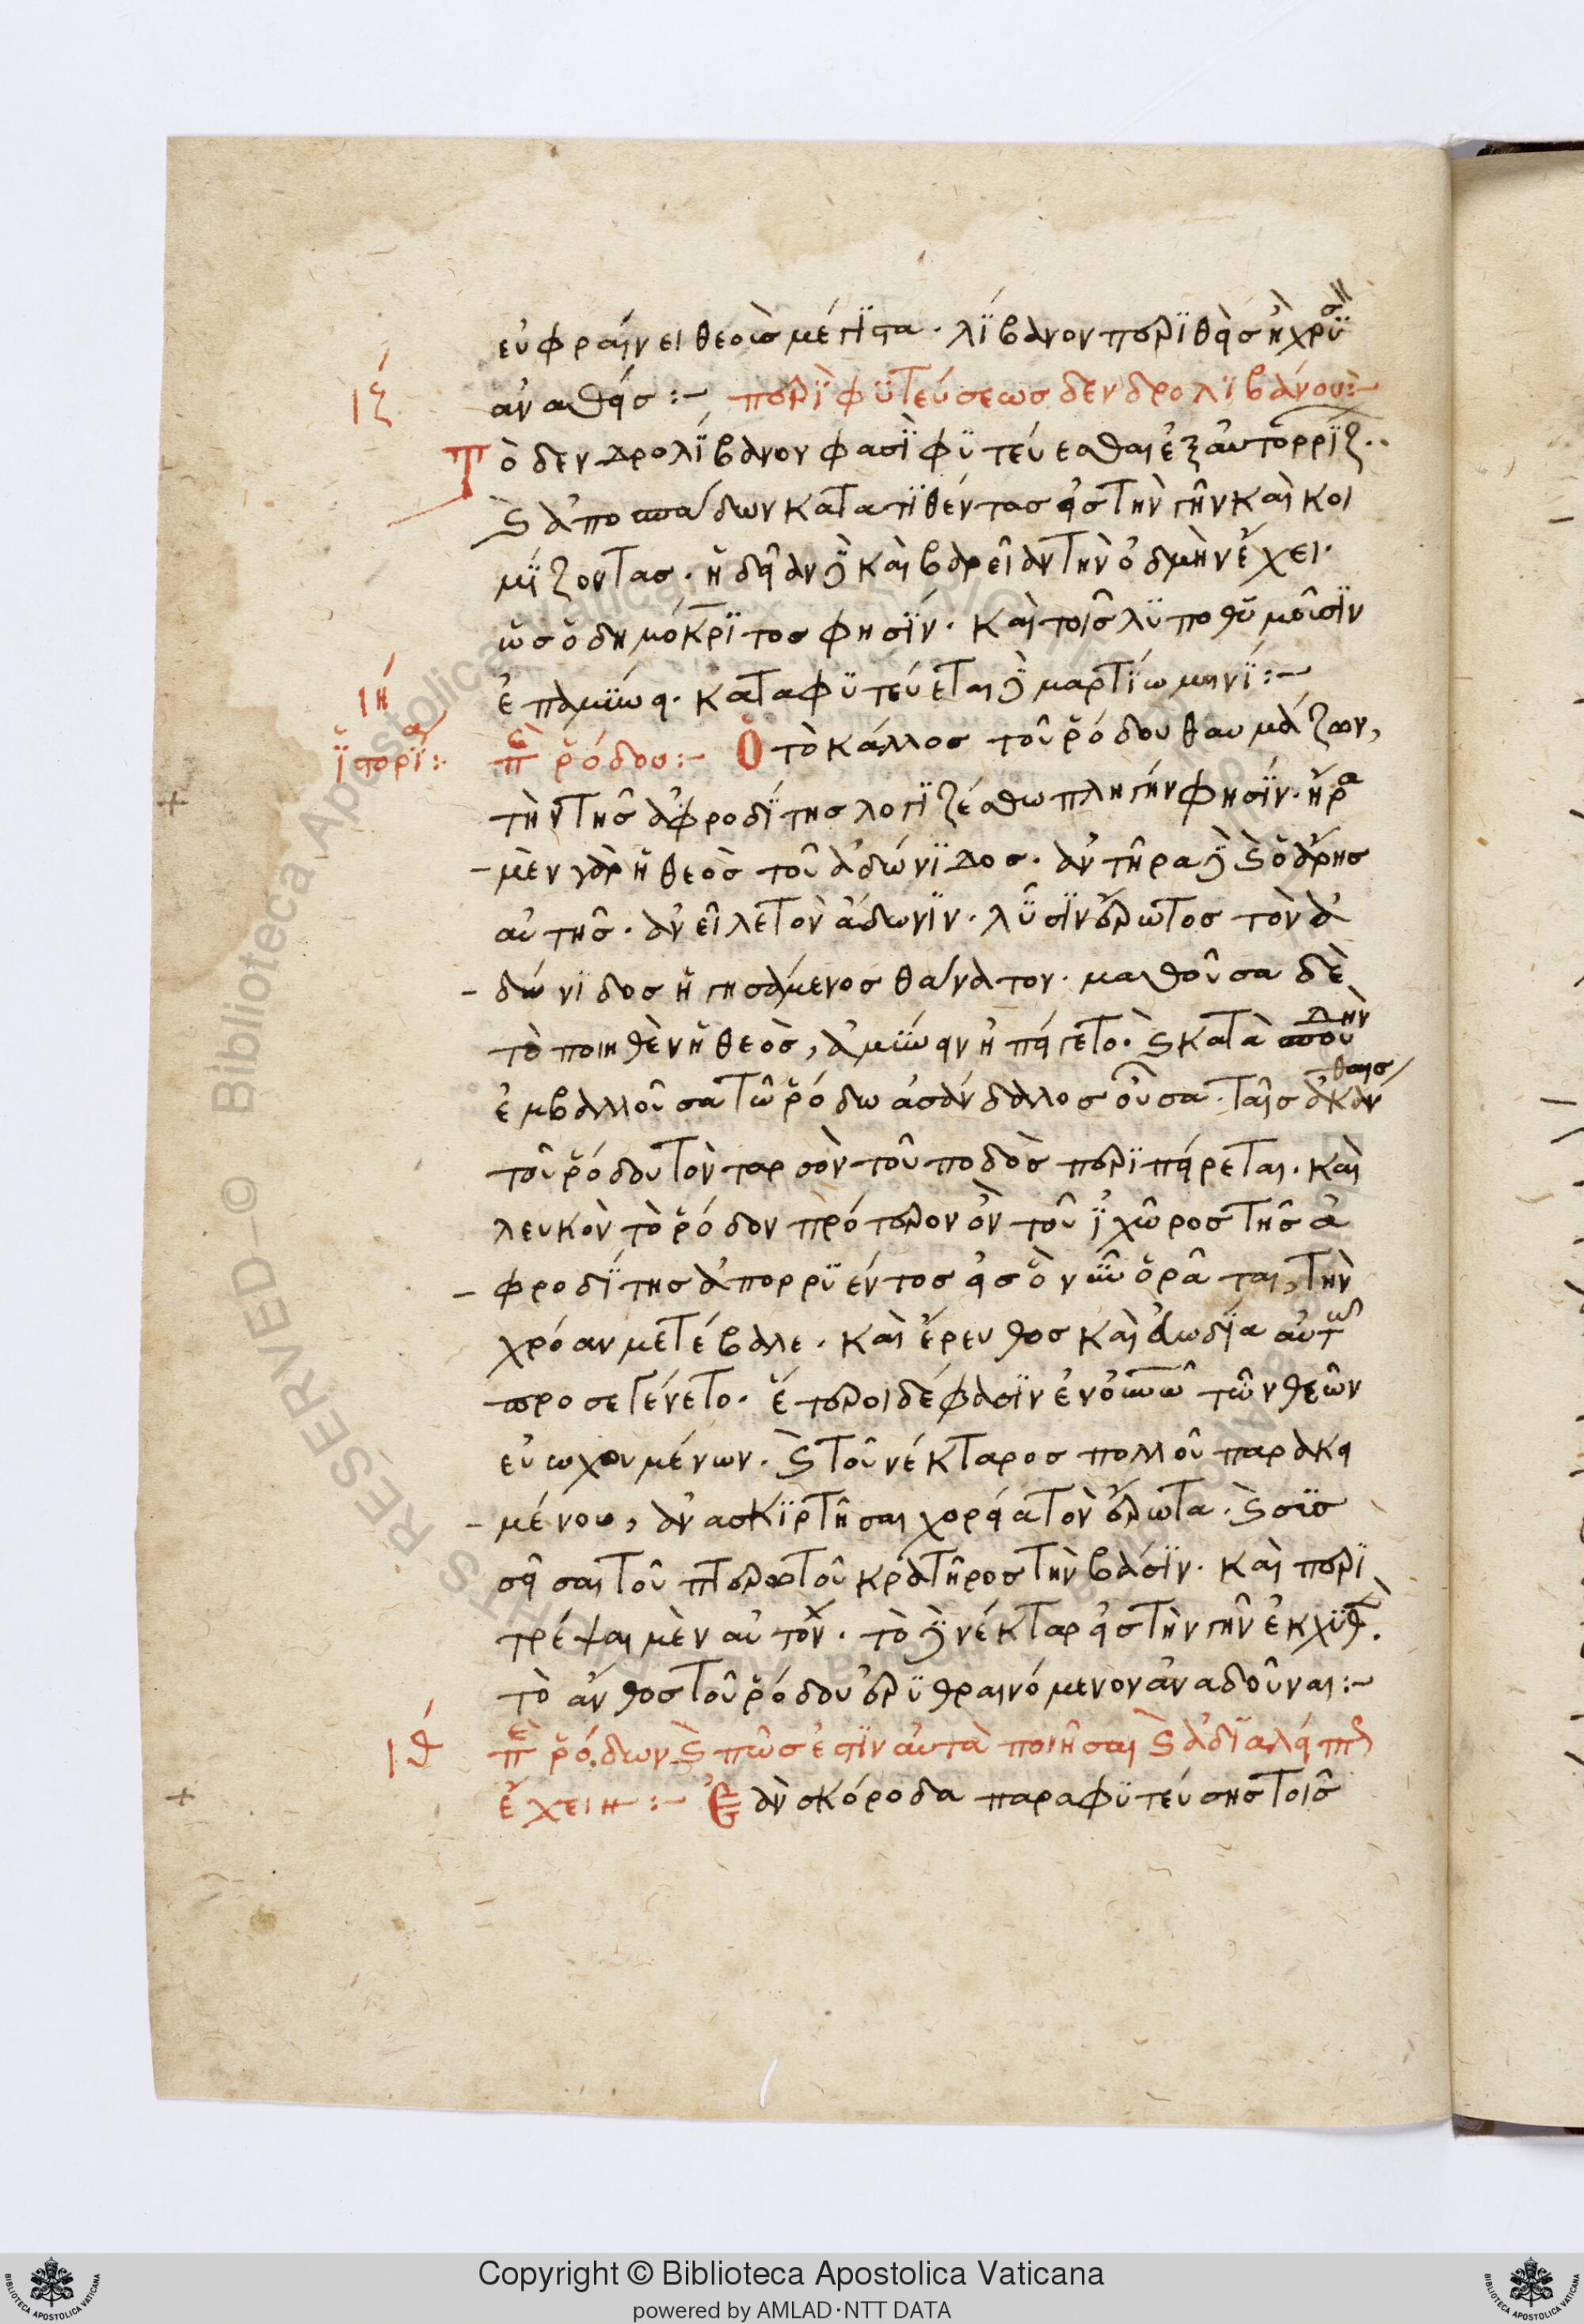 εὐφραίνει θεοὺς μέγιστα. λίβανον περιθεὶς ἢ χρυσ
ιζ ἀναθείς :- περὶ φυτεύσεως δενδρολιβάνου :-
Τὸ δενδρολίβανον φασὶ φυτεύεσθαι ἐξ αὐτορρίζ..
καὶ ἀποσπάδων κατατιθέντας εἰς τὴν γῆν καὶ κοι
μίζοντας. ἡδεῖαν δὲ καὶ βαρεῖαν τὴν ὀδμὴν ἔχει.
ὡς ὁ δημόκριτος φησίν. καὶ τοῖς λυποθυμοῦσιν
ιη ἐπαμύνει. καταφυτεύεται δὲ μαρτίω μηνί :-
ἱστορία :- περὶ ῥόδου :- Ὁ τὸ κάλλος τοῦ ῥόδου θαυμάζων,
τὴν τῆς ἀφροδίτης λογιζέσθω πληγήν φησίν. ἤρα
μὲν γὰρ ἡ θεὸς τοῦ ἀδώνιδος. ἀντήρα δὲ καὶ ὁ ἄρης
αὐτῆς. ἀνεῖλε τὸν ἄδωνιν. λῦσιν ἔρωτος τὸν ἀ
δώνιδος ἡγησάμενος θάνατον. μαθοῦσα δὲ
τὸ ποιηθὲν ἡ θεὸς, ἀμύνειν ἠπείγετο. καὶ κατὰ σπουδὴν
ἐμβαλλοῦσα τῶ ῥόδω ἀσάνδαλος οὖσα. ταῖς ἀκάνθαις
τοῦ ῥόδου τὸν ταρσὸν τοῦ ποδὸς περιπείρεται. καὶ
λευκὸν τὸ ῥόδον πρότερον ὂν τοῦ ἰχῶρος τῆς ἀ
φροδίτης ἀπορρυέντος εἰς ὃ νῦν ὁρᾶται, τὴν
χρόαν μετέβαλε. καὶ ἔρευθος καὶ εὐωδία αὐτῶ
προσεγένετο. ἕτεροι δέ φασιν ἐν οὐνῶ τῶν θεῶν
εὐωχουμένων. καὶ τοῦ νέκταρος πολλοῦ παρακει
μένου, ἀνασκιρτῆσαι χορεία τὸν ἔρωτα. καὶ συσ
σεῖσαι τοῦ πτερῶ τοῦ κρατῆρος τὴν βάσιν. καὶ περι
τρέψαι μὲν αὐτόν. τὸ δὲ νέκταρ εἰς τὴν γῆν ἐκχυθὲν.
τὸ ἄνθος τοῦ ῥόδου ἐρυθραινόμενον ἀναδοῦναι :-
ιθ περὶ ῥόδων καὶ πῶς ἐστιν αὐτὰ ποιῆσαι καὶ ἀδιαλείπτως
ἔχειν :- Ἐὰν σκόροδα παραφυτεύσης τοῖς
Copyright © Biblioteca Apostolica Vaticana
powered by AMLAD·NTT DATA